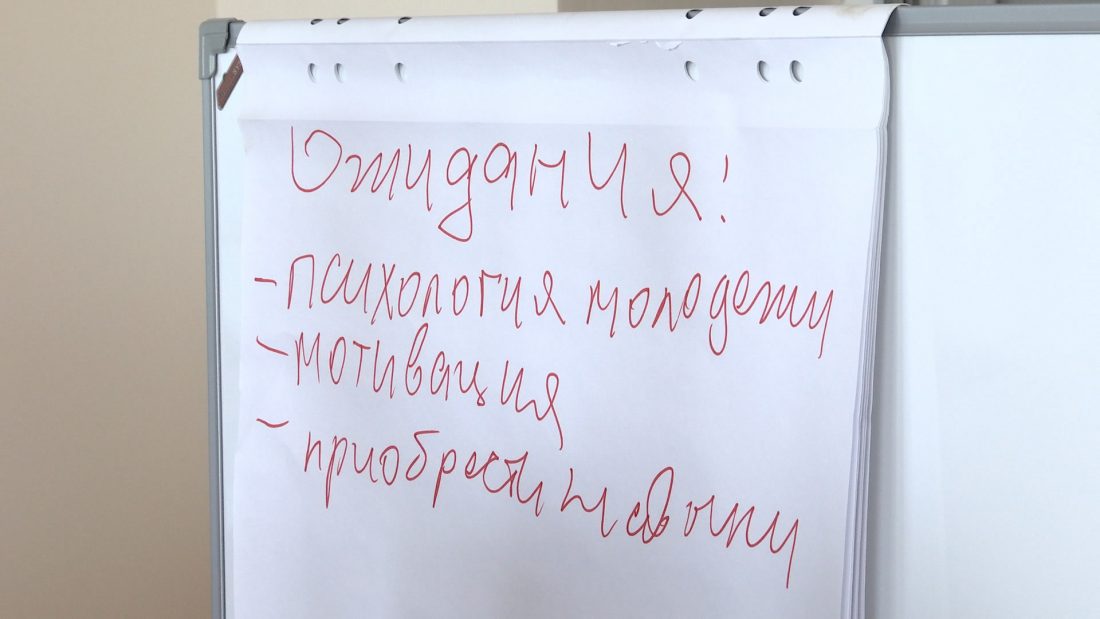 Ожидания!
- психология молодежи
- мотивация
- приобрести навыки